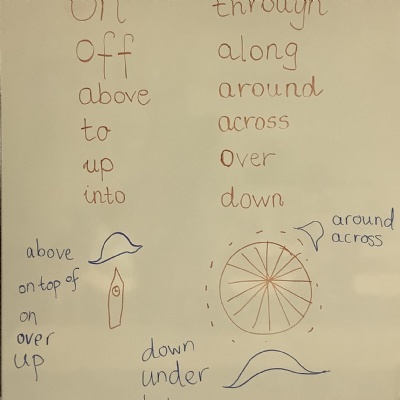 on
off
above
to
up
into
through
along
around
across
over
down
above
on top of
on
over
up
around
across
down
under